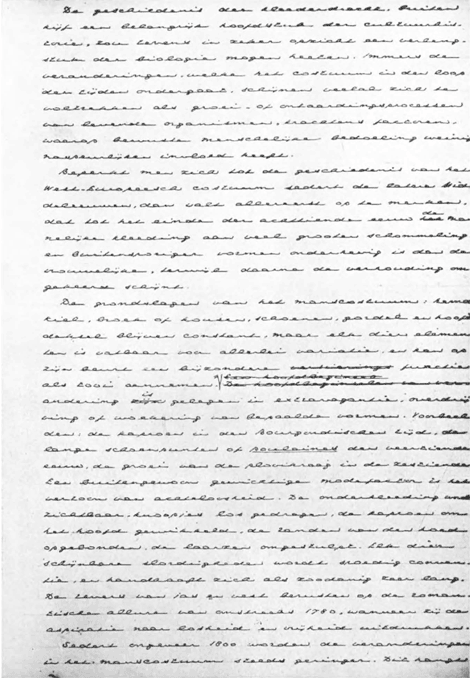 De geschiedenis der kleederdracht, buiten
kijf een belangrijk hoofdstuk der cultuurhis-
torie, zou tevens in zeker opzicht een verleng-
stuk der biologie mogen heeten. Immers de
veranderingen, welke het costuum in den loop
der tijden ondergaat, schijnen veelal zich te
voltrekken als groei- of ontaardingsprocessen
van levende organismen, trachtens factoren,
waarop bewuste menschelijke bedoeling weinig
naspeurlijken invloed heeft.
Beperkt men zich tot de geschiedenis van het
West-Europeesch costuum sedert de latere Mid
deleeuwen, dan valt allereerst op te merken,
dat tot het einde der achttiende eeuw de man
nelijke kleeding aan veel grooter schommeling
en buitensporiger vormen onderhevig is dan de
vrouwelijke, terwijl daarna de verhouding om
gekeerd schijnt.
De grondslagen van het manscostuum: hemd
kiel, broek of housen, schoenen, gordel en hoofd
deksel blijven constant, maar elk dier elemen
ten is vatbaar voor allerlei variatie, en kan op
zijn beurt een bijzondere functie
als tooi aannemen. De ver-
andering is gelegen in extravagantie, overdrij
ving of woekering van bepaalde vormen. Voorbeel
den: de kaproen in den Bourgondischen tijd, de
lange schoenpunten of poulaines der veertiende
eeuw, de groei van de plooikraag in de zestiende
Een buitengewoon gewichtige modefactor is het
vertoon van achteloosheid. De onderkleeding
zichtbaar, knoopjes los gedragen, de kaproen om
het hoofd gewikkeld, de randen van den hoed
opgebonden, de laarzen omgestulpt. Elk dier
schijnbare slordigheden wordt spoedig conven
tie, en handhaaft zich als zoodanig zeer lang.
De revers van jas en vest berusten op de roman
tische allure van omstreeks 1780, wanneer zij de
aspiratie naar losheid en vrijheid uitdrukken.
Sedert ongeveer 1800 worden de veranderingen
in het manscostuum steeds geringer. Dit hangt